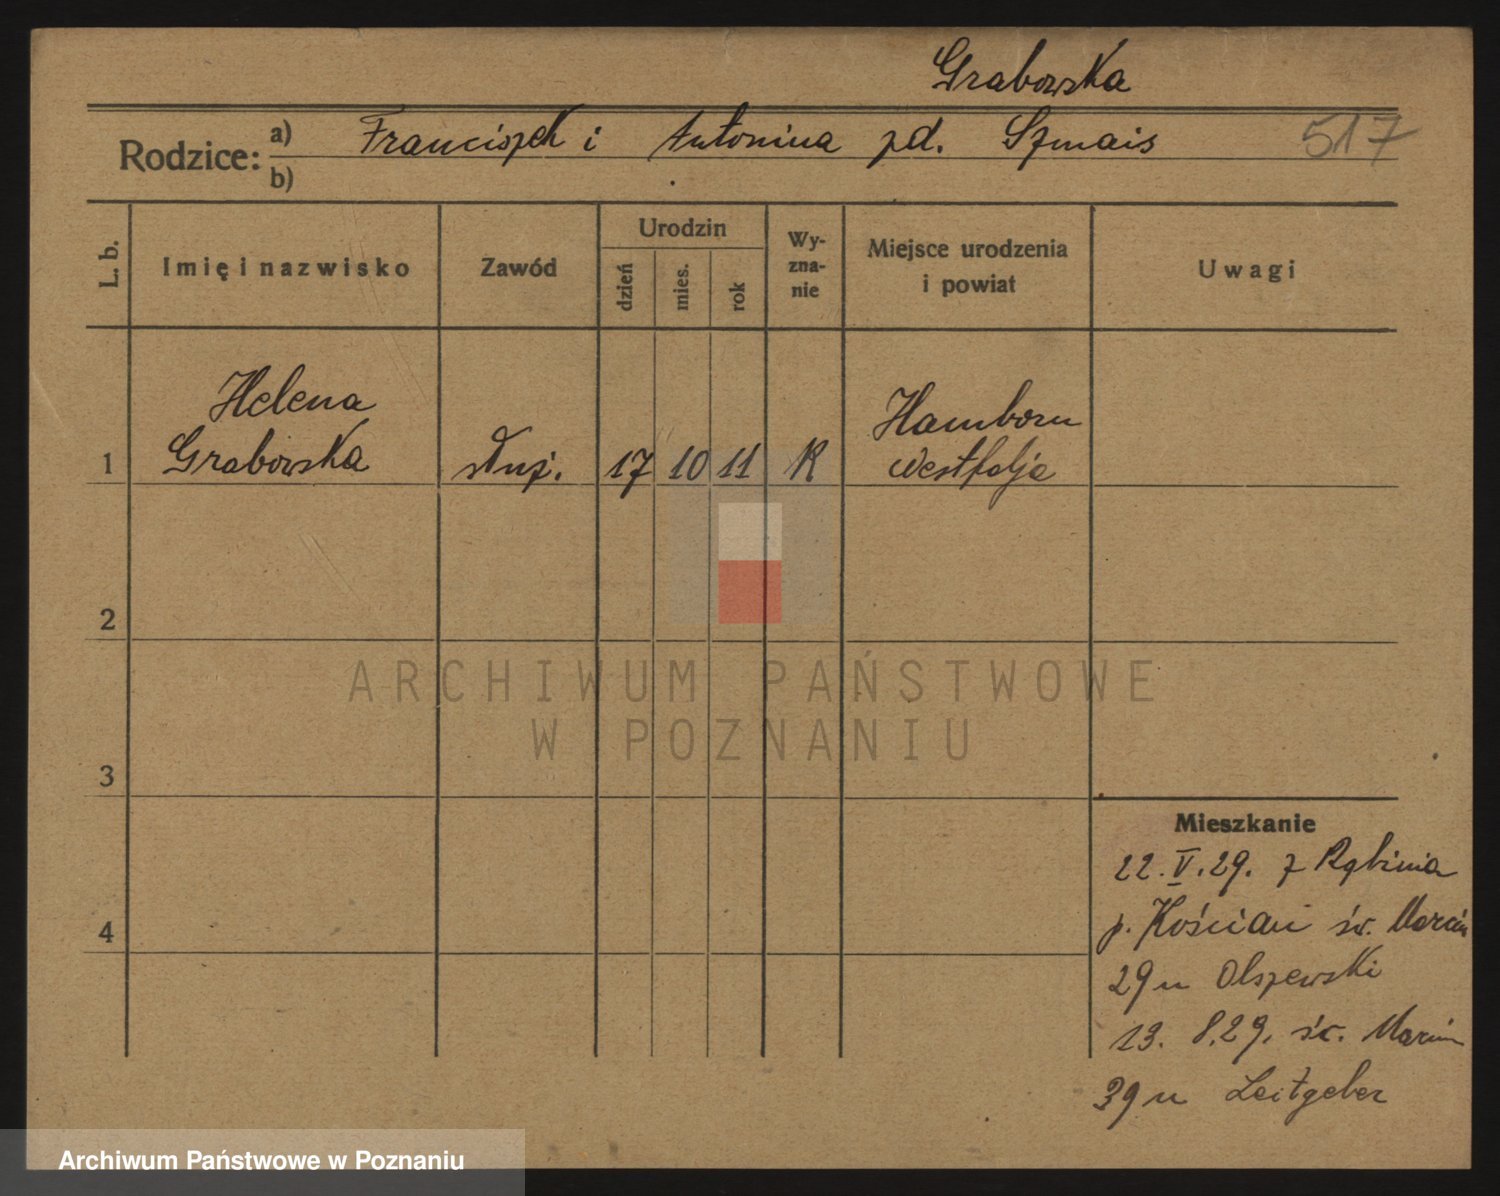 Grabowska
Rodzice: a) Franciszek i Antonina zd. Szmais 517
b)
L. b.
Imię i nazwisko
Zawód
Urodzin
dzień
mies.
rok
Wy-
zna-
nie
Miejsce urodzenia
i powiat
Uwagi
1 Helena
Grabowska
służ.
17 10 11
K
Hamborn
Westfalja
2
3
4
Mieszkanie
22. V. 29. z Rąbinia
p. Kościan św. Marcin
29 u Olszewski
13. 8.29. św. Marcin
39 u Leitgeber
ARCHIWUM PAŃSTWOWE
W POZNANIU
Archiwum Państwowe w Poznaniu